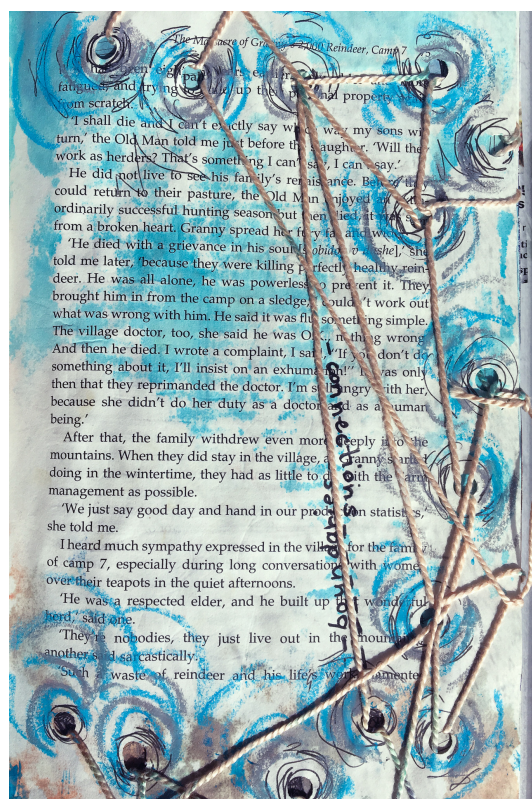 The Massacre of Granny's 2,000 Reindeer, Camp 7
earlier,
fatigued, and trying to up their personal property
from scratch.
'I shall die and I can't exactly say which way my sons wi
turn,' the Old Man told me just before the slaughter. 'Will the
work as herders? That's something I can't say, I can't say.'
He did not live to see his family's renaissance. Before they
could return to their pasture, the Old Man enjoyed an
ordinarily successful hunting season but then died, it was s
from a broken heart. Granny spread her fury far and wide.
'He died with a grievance in his soul [s obidoi v dushe],' she
told me later, 'because they were killing perfectly healthy rein-
deer. He was all alone, he was powerless to prevent it. They
brought him in from the camp on a sledge, couldn't work out
what was wrong with him. He said it was flu, something simple.
The village doctor, too, she said he was O nothing wrong
And then he died. I wrote a complaint, I sai "If you don't do
something about it, I'll insist on an exhumation!" It was only
then that they reprimanded the doctor. I'm so angry with her,
because she didn't do her duty as a doctor and as a human
being.'
After that, the family withdrew even more deeply into the
mountains. When they did stay in the village, at Granny's
doing in the wintertime, they had as little to do with the farm
management as possible.
'We just say good day and hand in our production statistics,'
she told me.
I heard much sympathy expressed in the village for the family
of camp 7, especially during long conversations with wome
over their teapots in the quiet afternoons.
'He was a respected elder, and he built up that wonderful
herd,' said one.
'They're nobodies, they just live out in the mountains
another said sarcastically.
'Such a waste of reindeer and his life's work lamente
connections